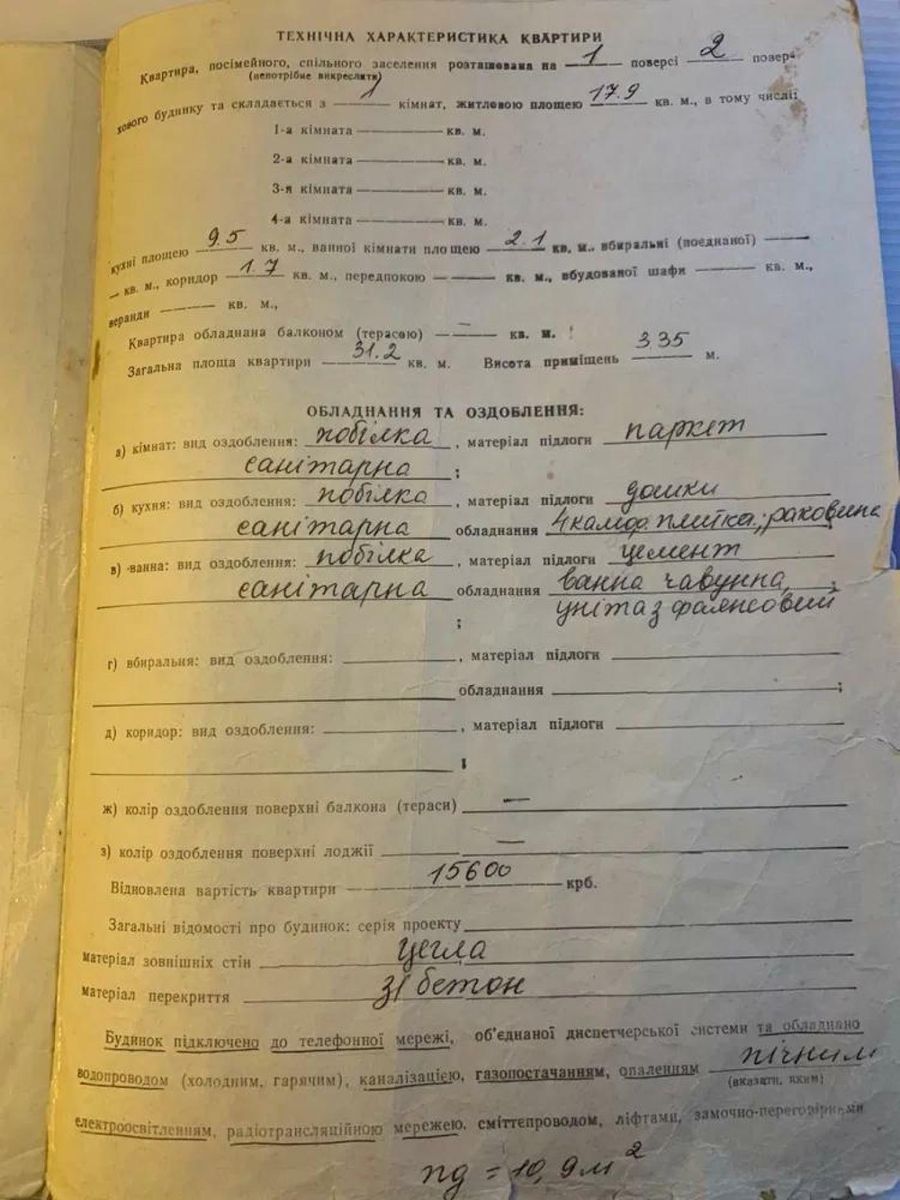 ТЕХНІЧНА ХАРАКТЕРИСТИКА КВАРТИРИ
Квартира, посімейного, спільного заселення розташована на 1 поверсі 2 повер-
(непотрібне викреслити)
хового будинку та складається з 1 кімнат, житловою площею 17.9 кв. м., в тому числі
1-а кімната кв. м.
2-а кімната кв. м.
3-я кімната кв. м.
4-а кімната кв. м.
кухні площею 9.5 кв. м., ванної кімнати площею 2.1 кв. м., вбиральні (поєднаної) —
— кв. м., коридор 1.7 кв. м., передпокою — кв. м., вбудованої шафи — кв. м.,
веранди — кв. м.,
Квартира обладнана балконом (терасою) — кв. м.
Загальна площа квартири 31.2 кв. м. Висота приміщень 3.35 м.
ОБЛАДНАННЯ ТА ОЗДОБЛЕННЯ:
а) кімнат: вид оздоблення: побілка, матеріал підлоги паркет
санітарна ;
б) кухня: вид оздоблення: побілка, матеріал підлоги дошки
санітарна обладнання 4 камф. плитка; раковина
в) ванна: вид оздоблення: побілка, матеріал підлоги цемент
санітарна обладнання ванна чавунна,
; унітаз фаянсовий
г) вбиральня: вид оздоблення: , матеріал підлоги
обладнання ;
д) коридор: вид оздоблення: , матеріал підлоги
;
ж) колір оздоблення поверхні балкона (тераси) —
з) колір оздоблення поверхні лоджії —
Відновлена вартість квартири 15600 крб.
Загальні відомості про будинок: серія проекту
матеріал зовнішніх стін цегла
матеріал перекриття з/бетон
Будинок підключено до телефонної мережі, об'єднаної диспетчерської системи та обладнано
водопроводом (холодним, гарячим), каналізацією, газопостачанням, опаленням пічним
(вказати, яким)
електроосвітленням, радіотрансляційною мережею, сміттєпроводом, ліфтами, замочно-переговірними
пд = 10,9 м²